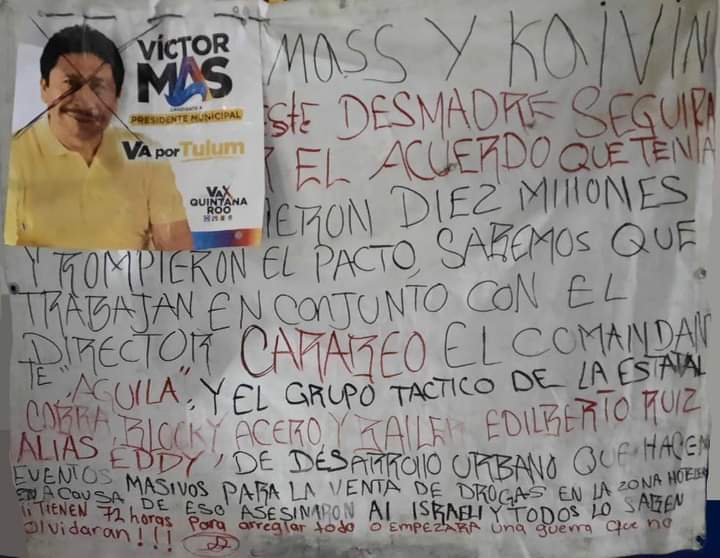 VÍCTOR
MAS
CANDIDATO A
PRESIDENTE MUNICIPAL
VA por Tulum
VAX
QUINTANA
ROO
MASS Y KAIVIN
Este DESMADRE SEGUIRA
R EL ACUERDO QUE TENIA
IERON DIEZ MIllONES
Y ROMPIERON EL PACTO, SABEMOS QUE
TRABAJAN EN CONJUNTO CON EL
DIRECTOR CARABEO EL COMANDAN
TE "AGUILA", Y EL GRUPO TACTICO DE LA ESTATAL
COBRA, BLOCKY ACERO Y RAILER EDILBERTO RUIZ
ALIAS EDDY, DE DESARROllO URBANO QUE HACEN
EVENTOS MASIVOS PARA LA VENTA DE DROGAS EN LA ZONA HOTELERA
EN A CAUSA DE ESO ASESINARON Al ISRAELI Y TODOS LO SABEN
¡¡TIENEN 72 horas Para arreglar todo o EMPEZARA una guerra que no
olvidaran!!!